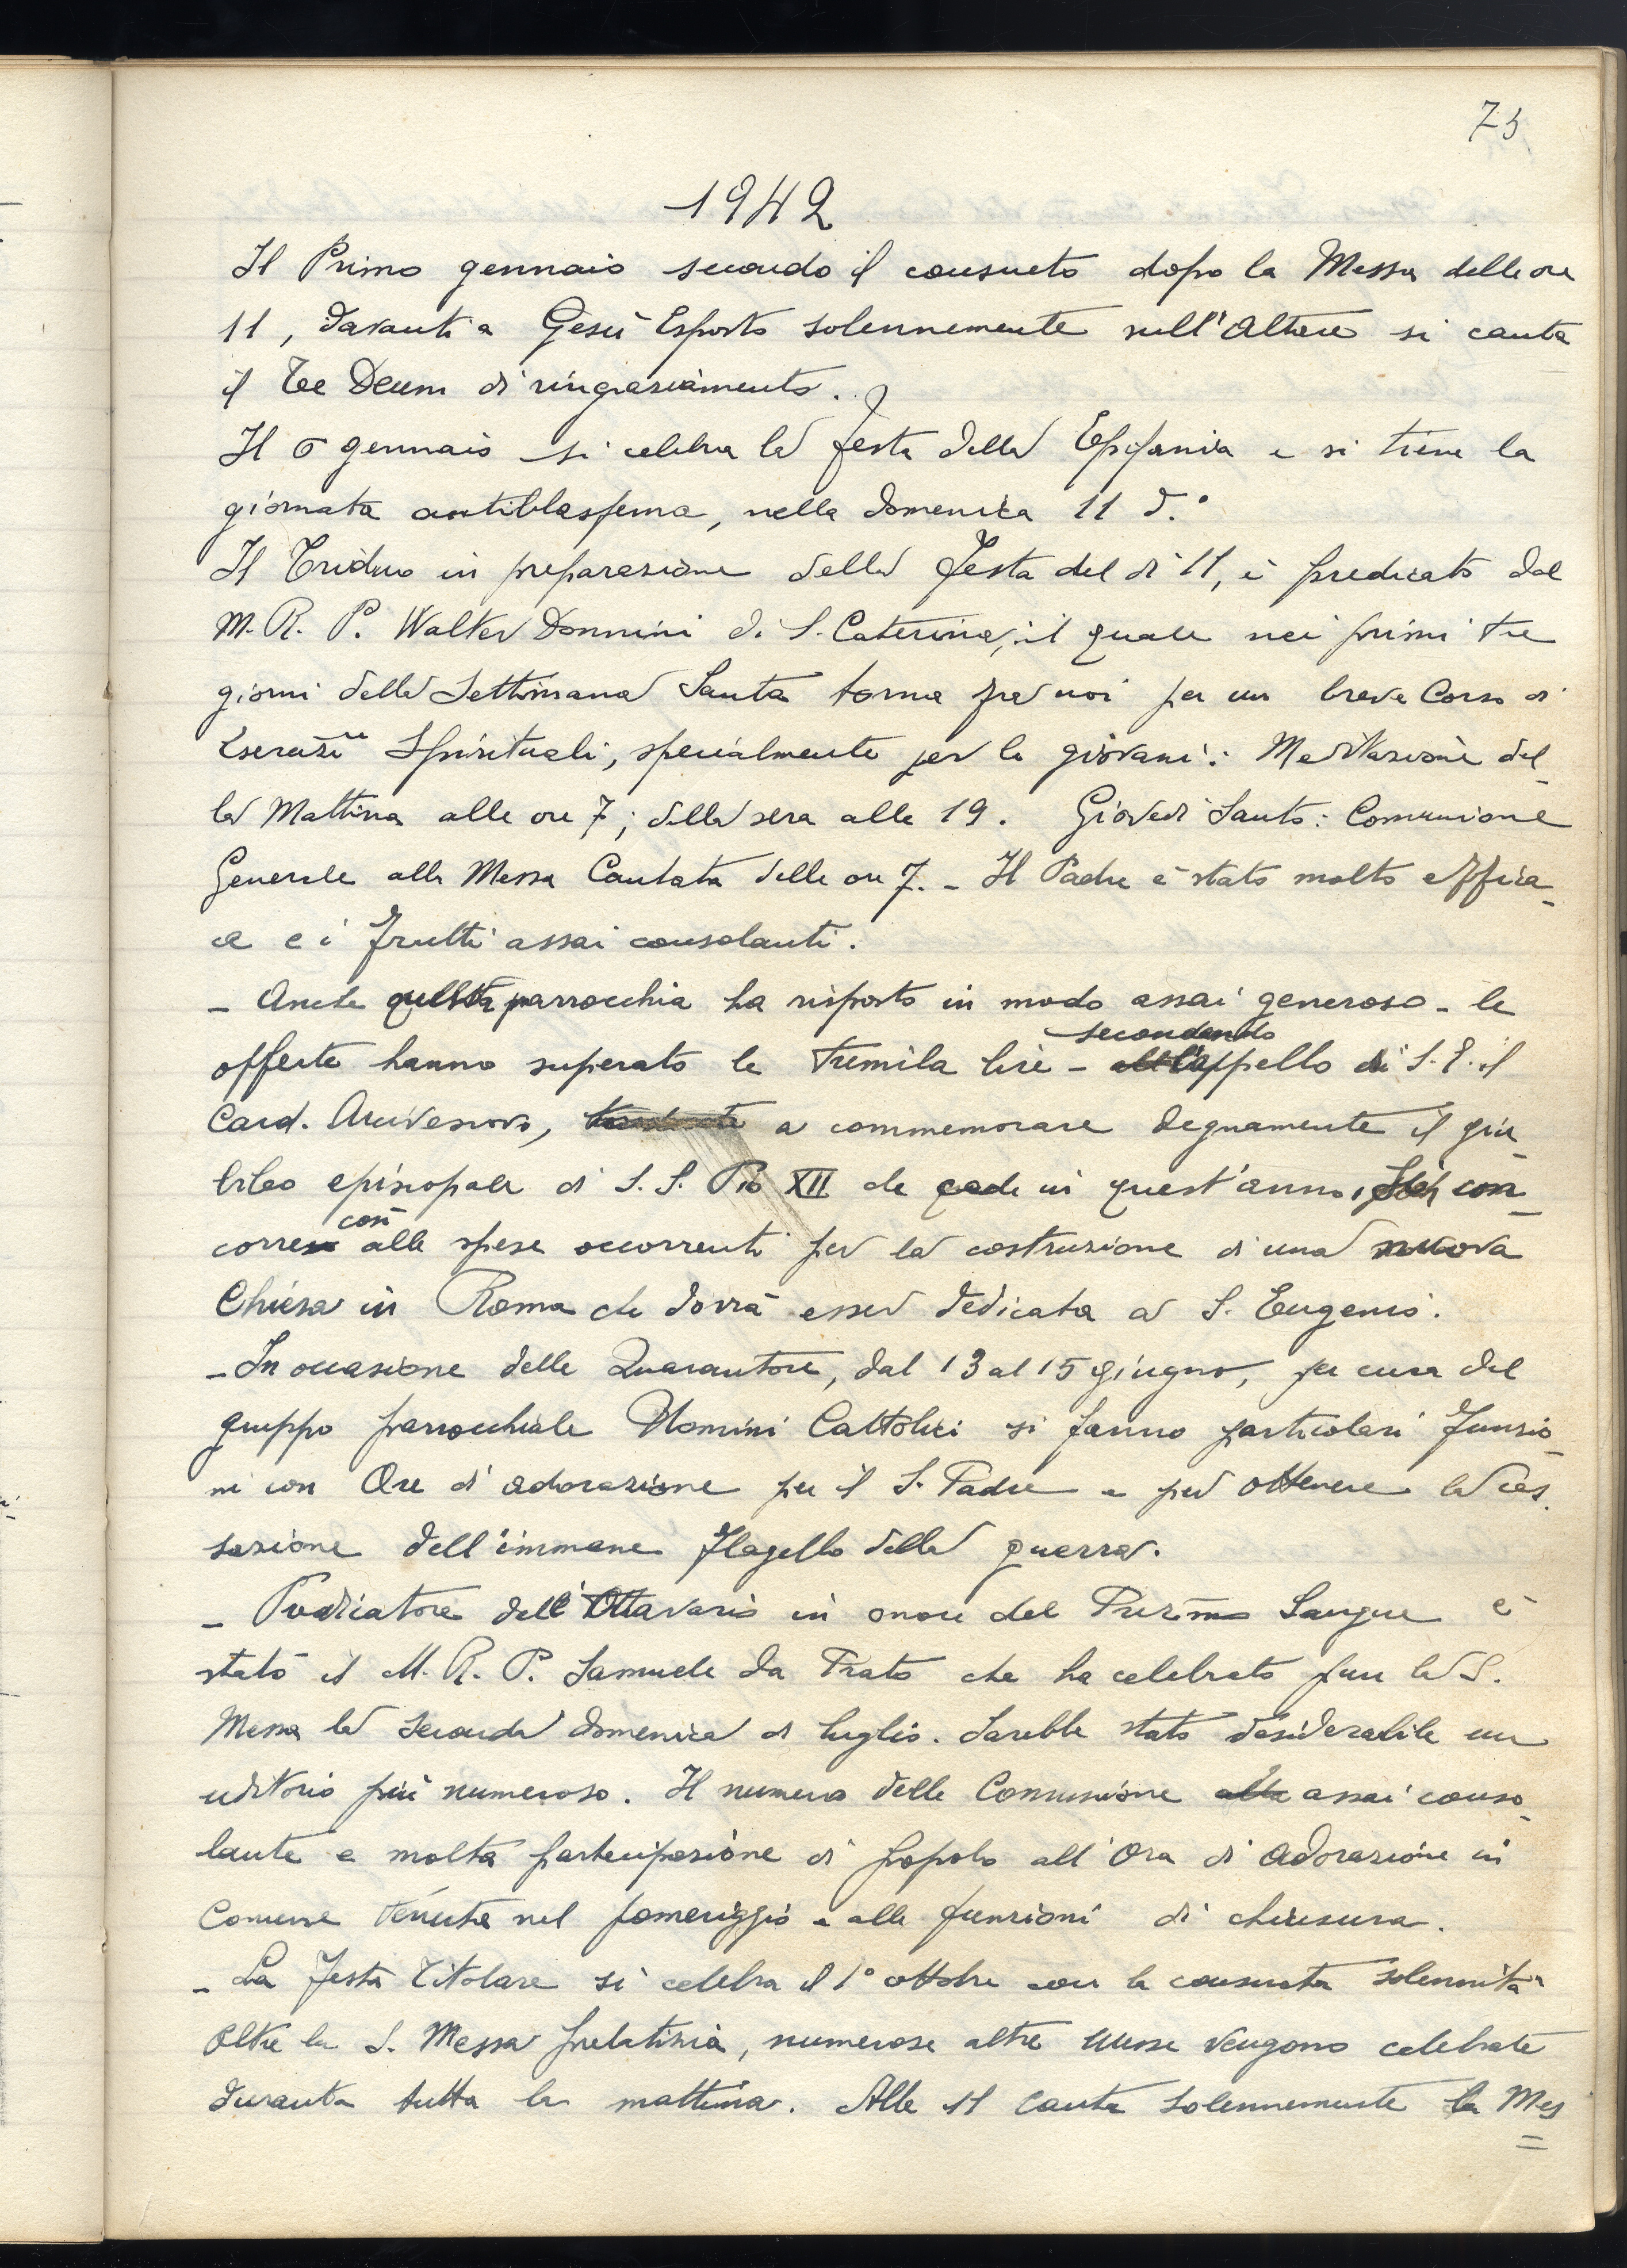 75
1942
Il Primo gennaio secondo il consueto dopo la Messa delle ore
11, davanti a Gesù Esposto solennemente sull'Altare si canta
il Tee Deum di ringraziamento.
Il 6 gennaio si celebra la festa della Epifania e si tiene la
giornata antiblasfema, nella domenica 11 d.°
Il Triduo in preparazione della Festa del dì 11, è predicato dal
M. R. P. Walter Donnini di S. Caterina, il quale nei primi tre
giorni della Settimana Santa torna fra noi per un breve Corso di
Esercizi Spirituali, specialmente per le giovani: Meditazione del-
la Mattina alle ore 7; della sera alle 19. Giovedì Santo: Comunione
Generale alla Messa Cantata delle ore 7. - Il Padre è stato molto effica-
ce e i frutti assai consolanti.
- Anche questa parrocchia ha risposto in modo assai generoso - le
offerte hanno superato le tremila lire - secondando l'appello di S. E. il
Card. Arcivescovo, a commemorare degnamente il giu-
bileo episcopale di S. S. Pio XII che cade in quest'anno, con-
corre così alle spese occorrenti per la costruzione di una nuova
Chiesa in Roma che dovrà esser dedicata a S. Eugenio.
- In occasione delle Quarantore, dal 13 al 15 giugno, per cura del
gruppo parrocchiale Uomini Cattolici si fanno particolari funzio-
ni con Ore di adorazione per il S. Padre e per ottenere la ces-
sazione dell'immane flagello della guerra.
- Predicatore dell'Ottavario in onore del Prez.mo Sangue è
stato il M. R. P. Samuele da Prato che ha celebrato pure la S.
Messa la seconda domenica di luglio. Sarebbe stato desiderabile un
uditorio più numeroso. Il numero delle Comunione assai conso-
lante e molta partecipazione di popolo all'Ora di Adorazione in
Comune tenuta nel pomeriggio e alla funzioni di chiusura.
- La festa Titolare si celebra il 1° ottobre con la consueta solennità
Oltre la S. Messa prelatizia, numerose altre Messe vengono celebrate
durante tutta la mattina. Alle 11 canta solennemente la Mes